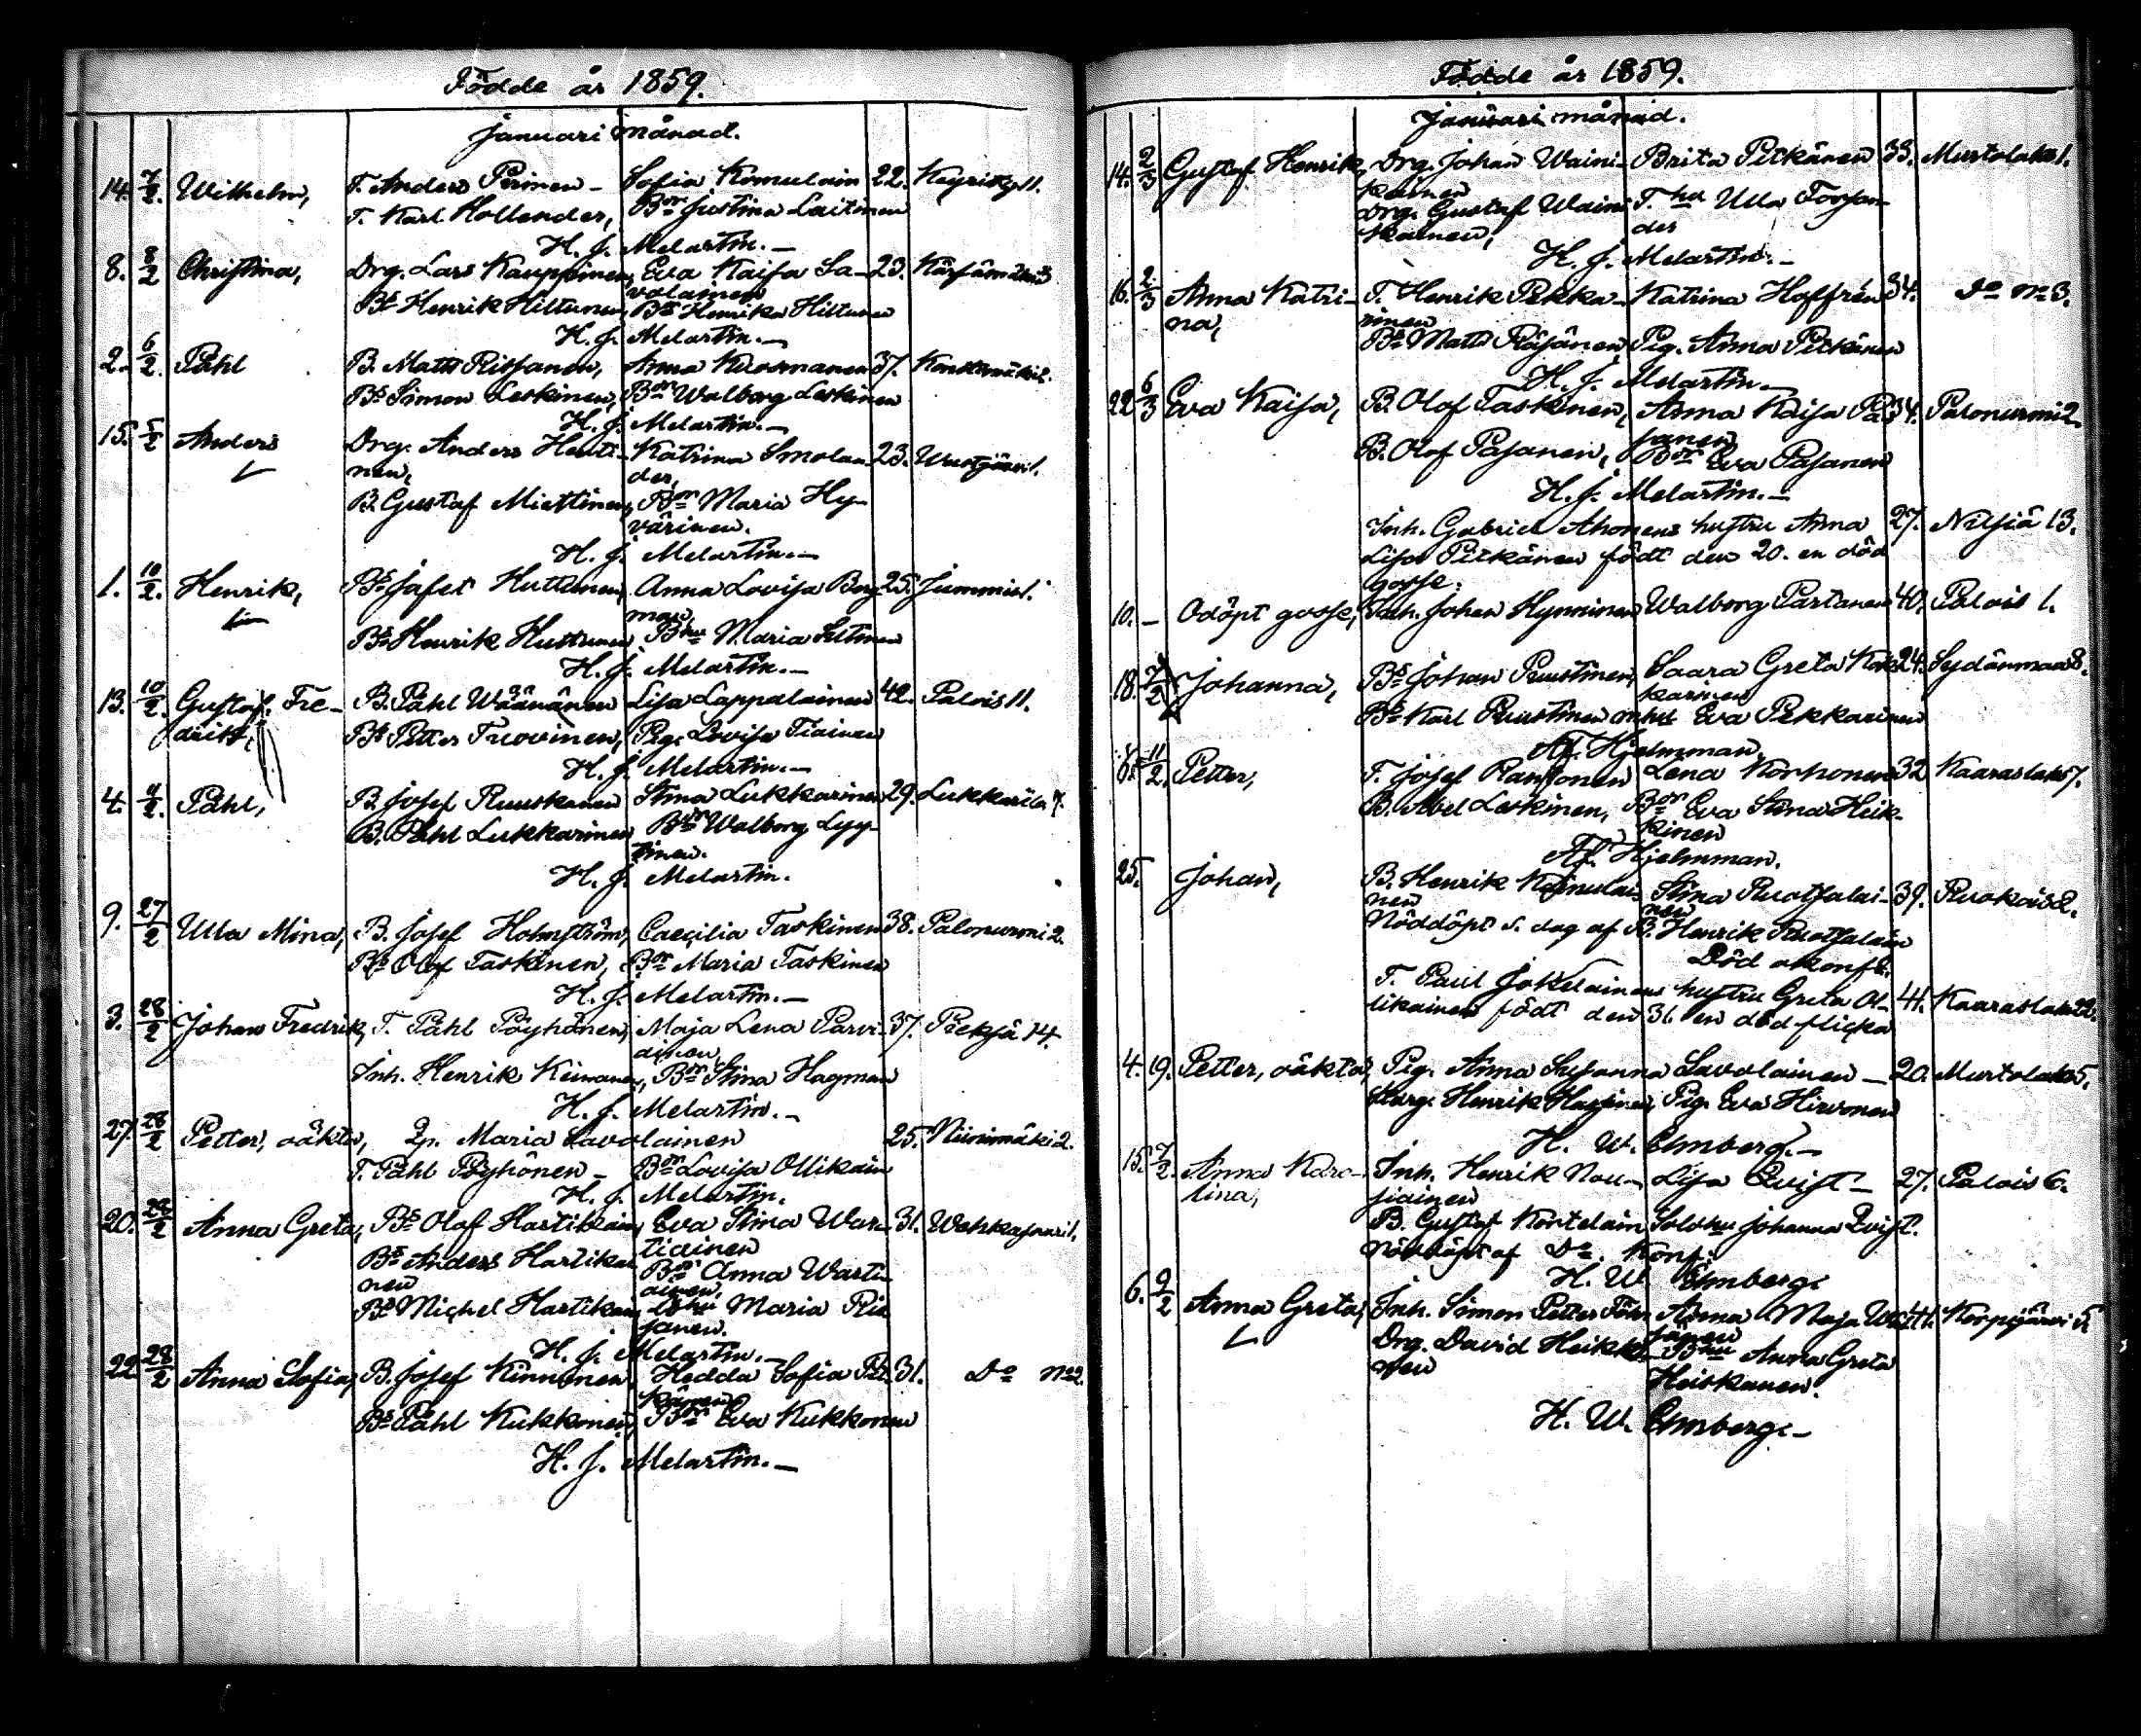 Födde år 1859.
Januari månad.
14. 7/2. Wilhelm, T. Anders Pirinen – Sofia Komulain 22. Keyrity 11.
T. Karl Hollender, Bon Justina Laitinen
H. J. Melartin. –
8. 8/2 Christina, Drg. Lars Kauppinen, Eva Kaisa Sa- 23.
volainen
Bs Henrik Hiltunen, Bon Henrika Hiltunen
H. J. Melartin. –
2. 6/2. Påhl B. Matts Rissanen, Anna Kuosmanen 37.
Bs Simon Leskinen, Bon Walborg Leskinen
H. J. Melartin. –
15. 5/2 Anders Drg. Anders Hutti- Katrina Smolan- 23.
nen, der,
B. Gustaf Miettinen, Bon Maria Hy-
värinen.
H. J. Melartin. –
1. 10/2. Henrik, Bs Jafet Huttunen, Anna Lovisa Berg- 25.
man,
Bs Henrik Huttunen Bhu Maria
H. J. Melartin. –
13. 10/2. Gustaf Fre- B. Påhl Väänänen Lisa Lappalainen 42. Palois 11.
drik, Bs Petter Tuovinen, Pig. Lovisa Tiainen
H. J. Melartin. –
4. Påhl, B. Josef Ruuskanen Stina Lukkarinen 29. Lukkarila 7.
B. Påhl Lukkarinen Walborg Lyy-
tinen.
H. J. Melartin.
9. 27/2 Ulla Mina, B. Josef Holmström, Caecilia Taskinen 38. Palonurmi 2.
Bs Olof Taskinen, Bon Maria Taskinen
H. J. Melartin. –
3. 28/2 Johan Fredrik, T. Påhl Pöyhönen, Maja Lena Parvi- 37. Pieksä 14.
ainen,
Inh. Henrik Keinanen, Bon Stina Hagman
H. J. Melartin. –
27. 28/2 Petter, oäkta, Qp. Maria Savolainen 25. Niinimäki 2.
T. Påhl Pöyhönen – Bon Lovisa Ollikain
H. J. Melartin.
20. 28/2 Anna Greta, Bs Olof Hartikain, Eva Stina War- 31.
tiainen
Bs Anders Hartikai- Bon Anna Warti-
nen ainen,
Bs Michel Hartikain, Maria Ris-
sanen.
H. J. Melartin. –
22. 28/2 Anna Sofia, B. Josef Kinnunen, Hedda Sofia Pit- 31. Do No 2.
känen
Bs Påhl Kukkonen, Bon Eva Kukkonen
H. J. Melartin. –
Födde år 1859.
Januari månad.
14. 2/3 Gustaf Henrik, Drg. Johan Waini- Brita Pitkänen 33. Murtolaks 1.
kainen
Drg. Gustaf Waini- T. hu Ulla Forsan-
kainen, der
H. J. Melartin. –
16. 2/3 Anna Katri- T. Henrik Pekka- Katrina Hoffrén 34. Do No 3.
na, rinen
Bs Matts Räsänen, Pig. Anna Pitkänen
H. J. Melartin. –
22. 6/3 Eva Kaisa, B. Olof Taskinen, Anna Kaisa Pa- 34. Palonurmi 2.
sanen
B. Olof Pasanen, Bon Eva Pasanen
H. J. Melartin. –
Inh. Gabriel Ahonens hustru Anna 27. Nilsiä 13.
Lisa Pitkänen födt den 20. en död
gosse.
10. – Odöpt gosse, Inh. Johan Hynninen Walborg Partanen 40. Palois 1.
18. 7/2 Johanna, Bs Johan Puustinen, Saara Greta 24. Sydänmaa 8.
karinen
Bs Karl Puustinen m. hu Eva Pekkarinen
Af. Hjelmman.
8. 11/2. Petter, T. Josef Ranssonen Lena Korhonen 32 Kaaraslaks 7.
B. Abel Leskinen, Bon Eva Stina Heik-
kinen
Af. Hjelmman.
25. Johan, B. Henrik Komulai- Stina Ruotsalai- 39.
nen nen
Nöddöpt s. dag af B. Henrik Ruotsalain
Död okonf.
T. Paul Jokelainens hustru Greta Ol- 44. Kaaraslaks 22.
likainen födt den 31. en död flicka
4. 19. Petter, oäkta, Pig. Anna Susanna Savolainen – 20. Murtolaks 5.
Henrik Pig. Eva Hirvonen
H. W. Elmberg. –
15. 7/2. Anna Karo- Inh. Henrik Nou- Lisa Qvist – 27. Palois 6.
lina, siainen
B. Gustaf Kortelain Sold. hu Johanna Qvist.
Nöddöpt af Do. Konf.
H. W. Elmberg.
6. 9/2 Anna Greta, Inh. Simon Petter Anna Maja 44. Korpijärvi 5.
sänen
Drg. David Heikki- Bhu Anna Greta
nen Heiskanen.
H. W. Elmberg. –